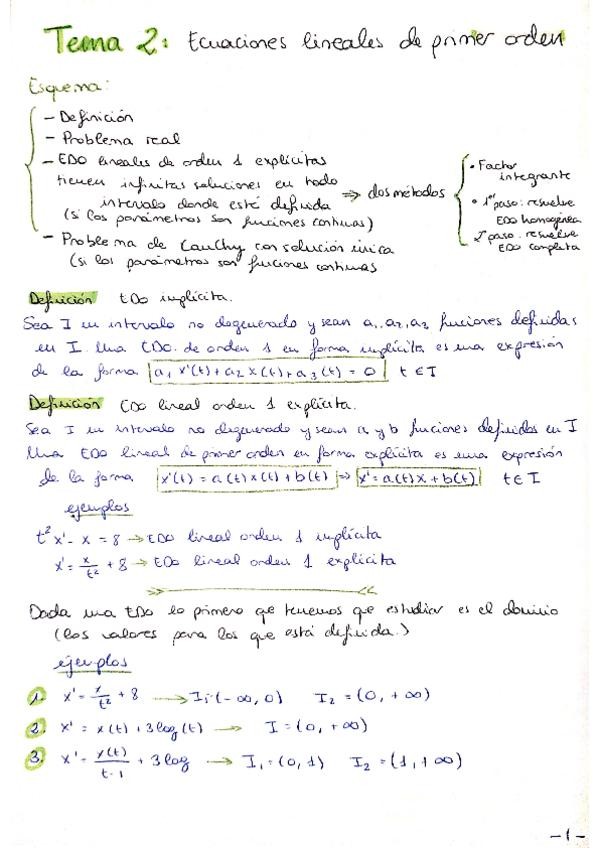 Tema 2: Ecuaciones lineales de primer orden
Esquema:
- Definición
- Problema real
- EDO lineales de orden 1 explícitas
tienen infinitas soluciones en todo
intervalo donde esté definida
(si los parámetros son funciones continuas)
⇒ dos métodos
• Factor
integrante
• 1er paso: resuelve
EDO homogénea
2º paso: resuelve
EDO completa
- Problema de Cauchy con solución única
(si los parámetros son funciones continuas
Definición EDO implícita.
Sea I un intervalo no degenerado y sean a1, a2, a3 funciones definidas
en I. Una EDO de orden 1 en forma implícita es una expresión
de la forma a1 x'(t) + a2 x(t) + a3(t) = 0 t ∈ I
Definición EDO lineal orden 1 explícita.
Sea I un intervalo no degenerado y sean a y b funciones definidas en I
Una EDO lineal de primer orden en forma explícita es una expresión
de la forma x'(t) = a(t)x(t) + b(t) ⇒ x' = a(t)x + b(t) t ∈ I
ejemplos
t² x' - x = 8 → EDO lineal orden 1 implícita
x' = x/t² + 8 → EDO lineal orden 1 explícita
Dada una EDO lo primero que tenemos que estudiar es el dominio
(los valores para los que está definida.)
ejemplos
1. x' = x/t² + 8 → I1 = (-∞, 0) I2 = (0, +∞)
2. x' = x(t) + 3log(t) → I = (0, +∞)
3. x' = x(t)/t-1 + 3log → I1 = (0, 1) I2 = (1, +∞)
-1-